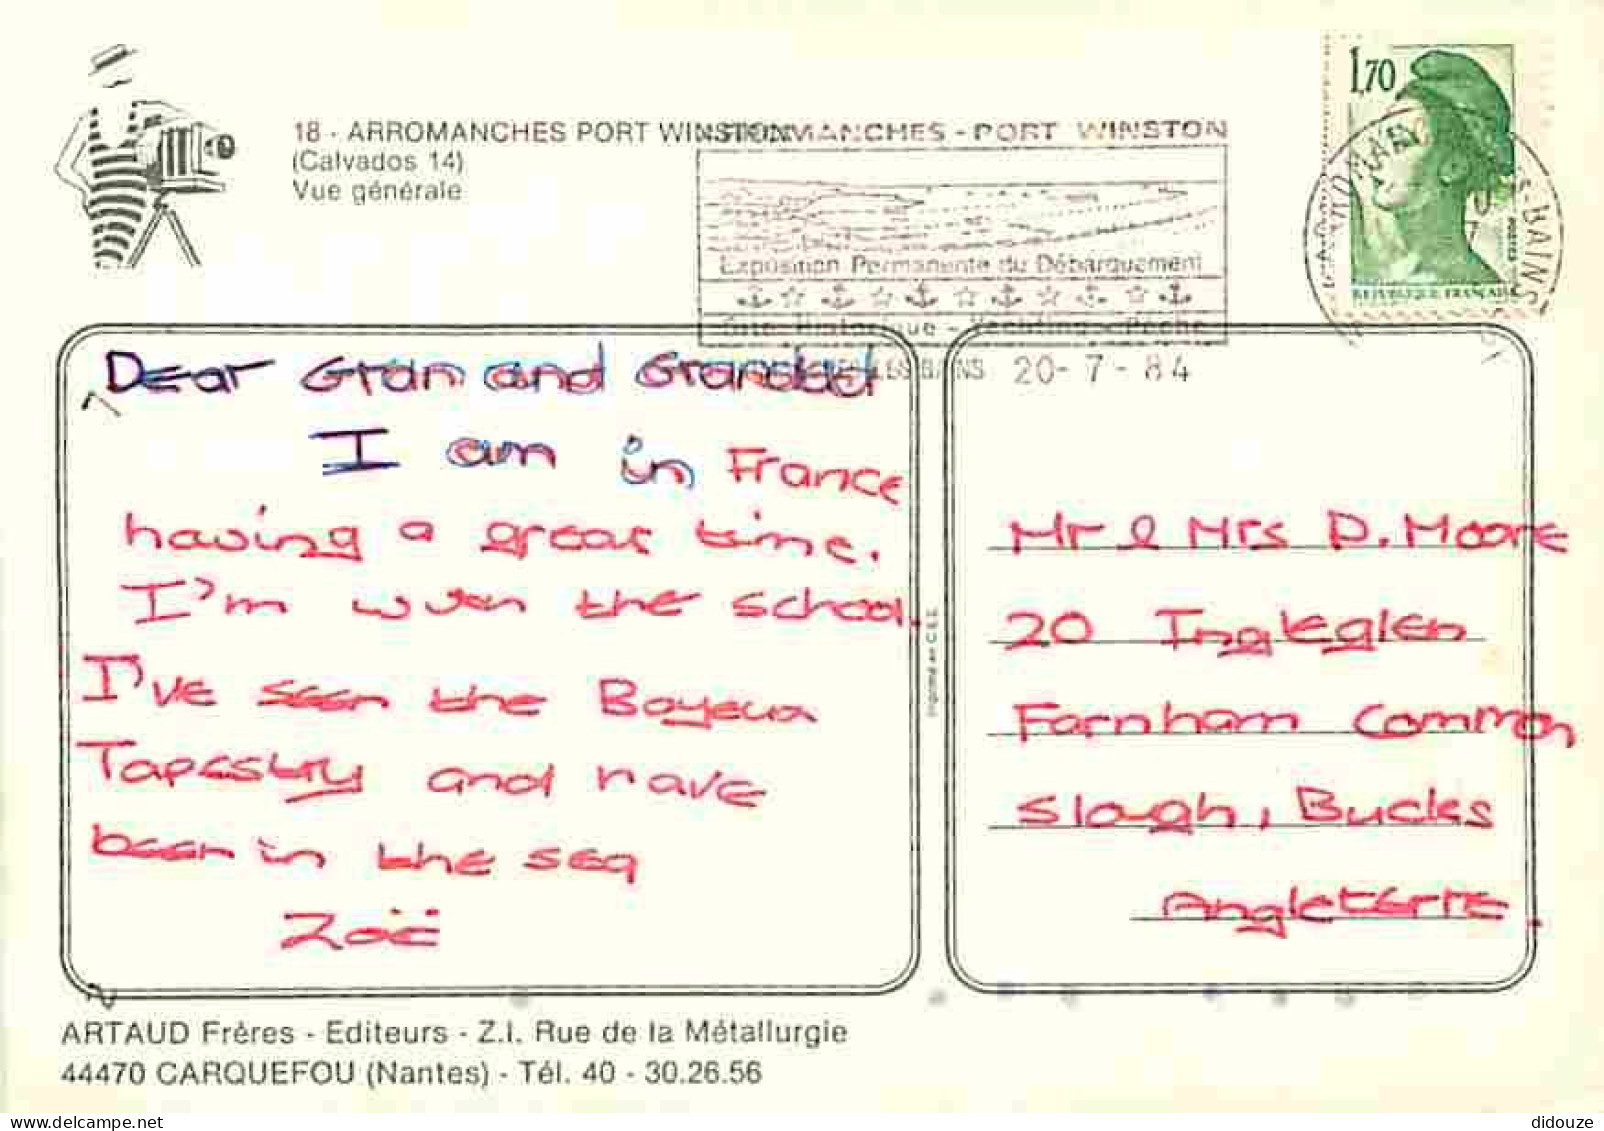 18 - ARROMANCHES PORT WINSTON
(Calvados 14)
Vue générale
MANCHES - PORT WINSTON
Exposition Permanente du Débarquement
Site Historique - Yachting - Pêche
LES BAINS 20-7-84
1,70
REPUBLIQUE FRANÇAISE
S-BAINS
Dear Gran and Grandad
I am in France
having a great time.
I'm with the school.
I've seen the Bayeux
Tapestry and have
been in the sea
Zoë
Mr & Mrs D. Moore
20 Ingleglen
Farnham Common
Slough, Bucks
Angleterre.
Imprimé en C.E.E.
ARTAUD Frères - Editeurs - Z.I. Rue de la Métallurgie
44470 CARQUEFOU (Nantes) - Tél. 40 - 30.26.56
didouze